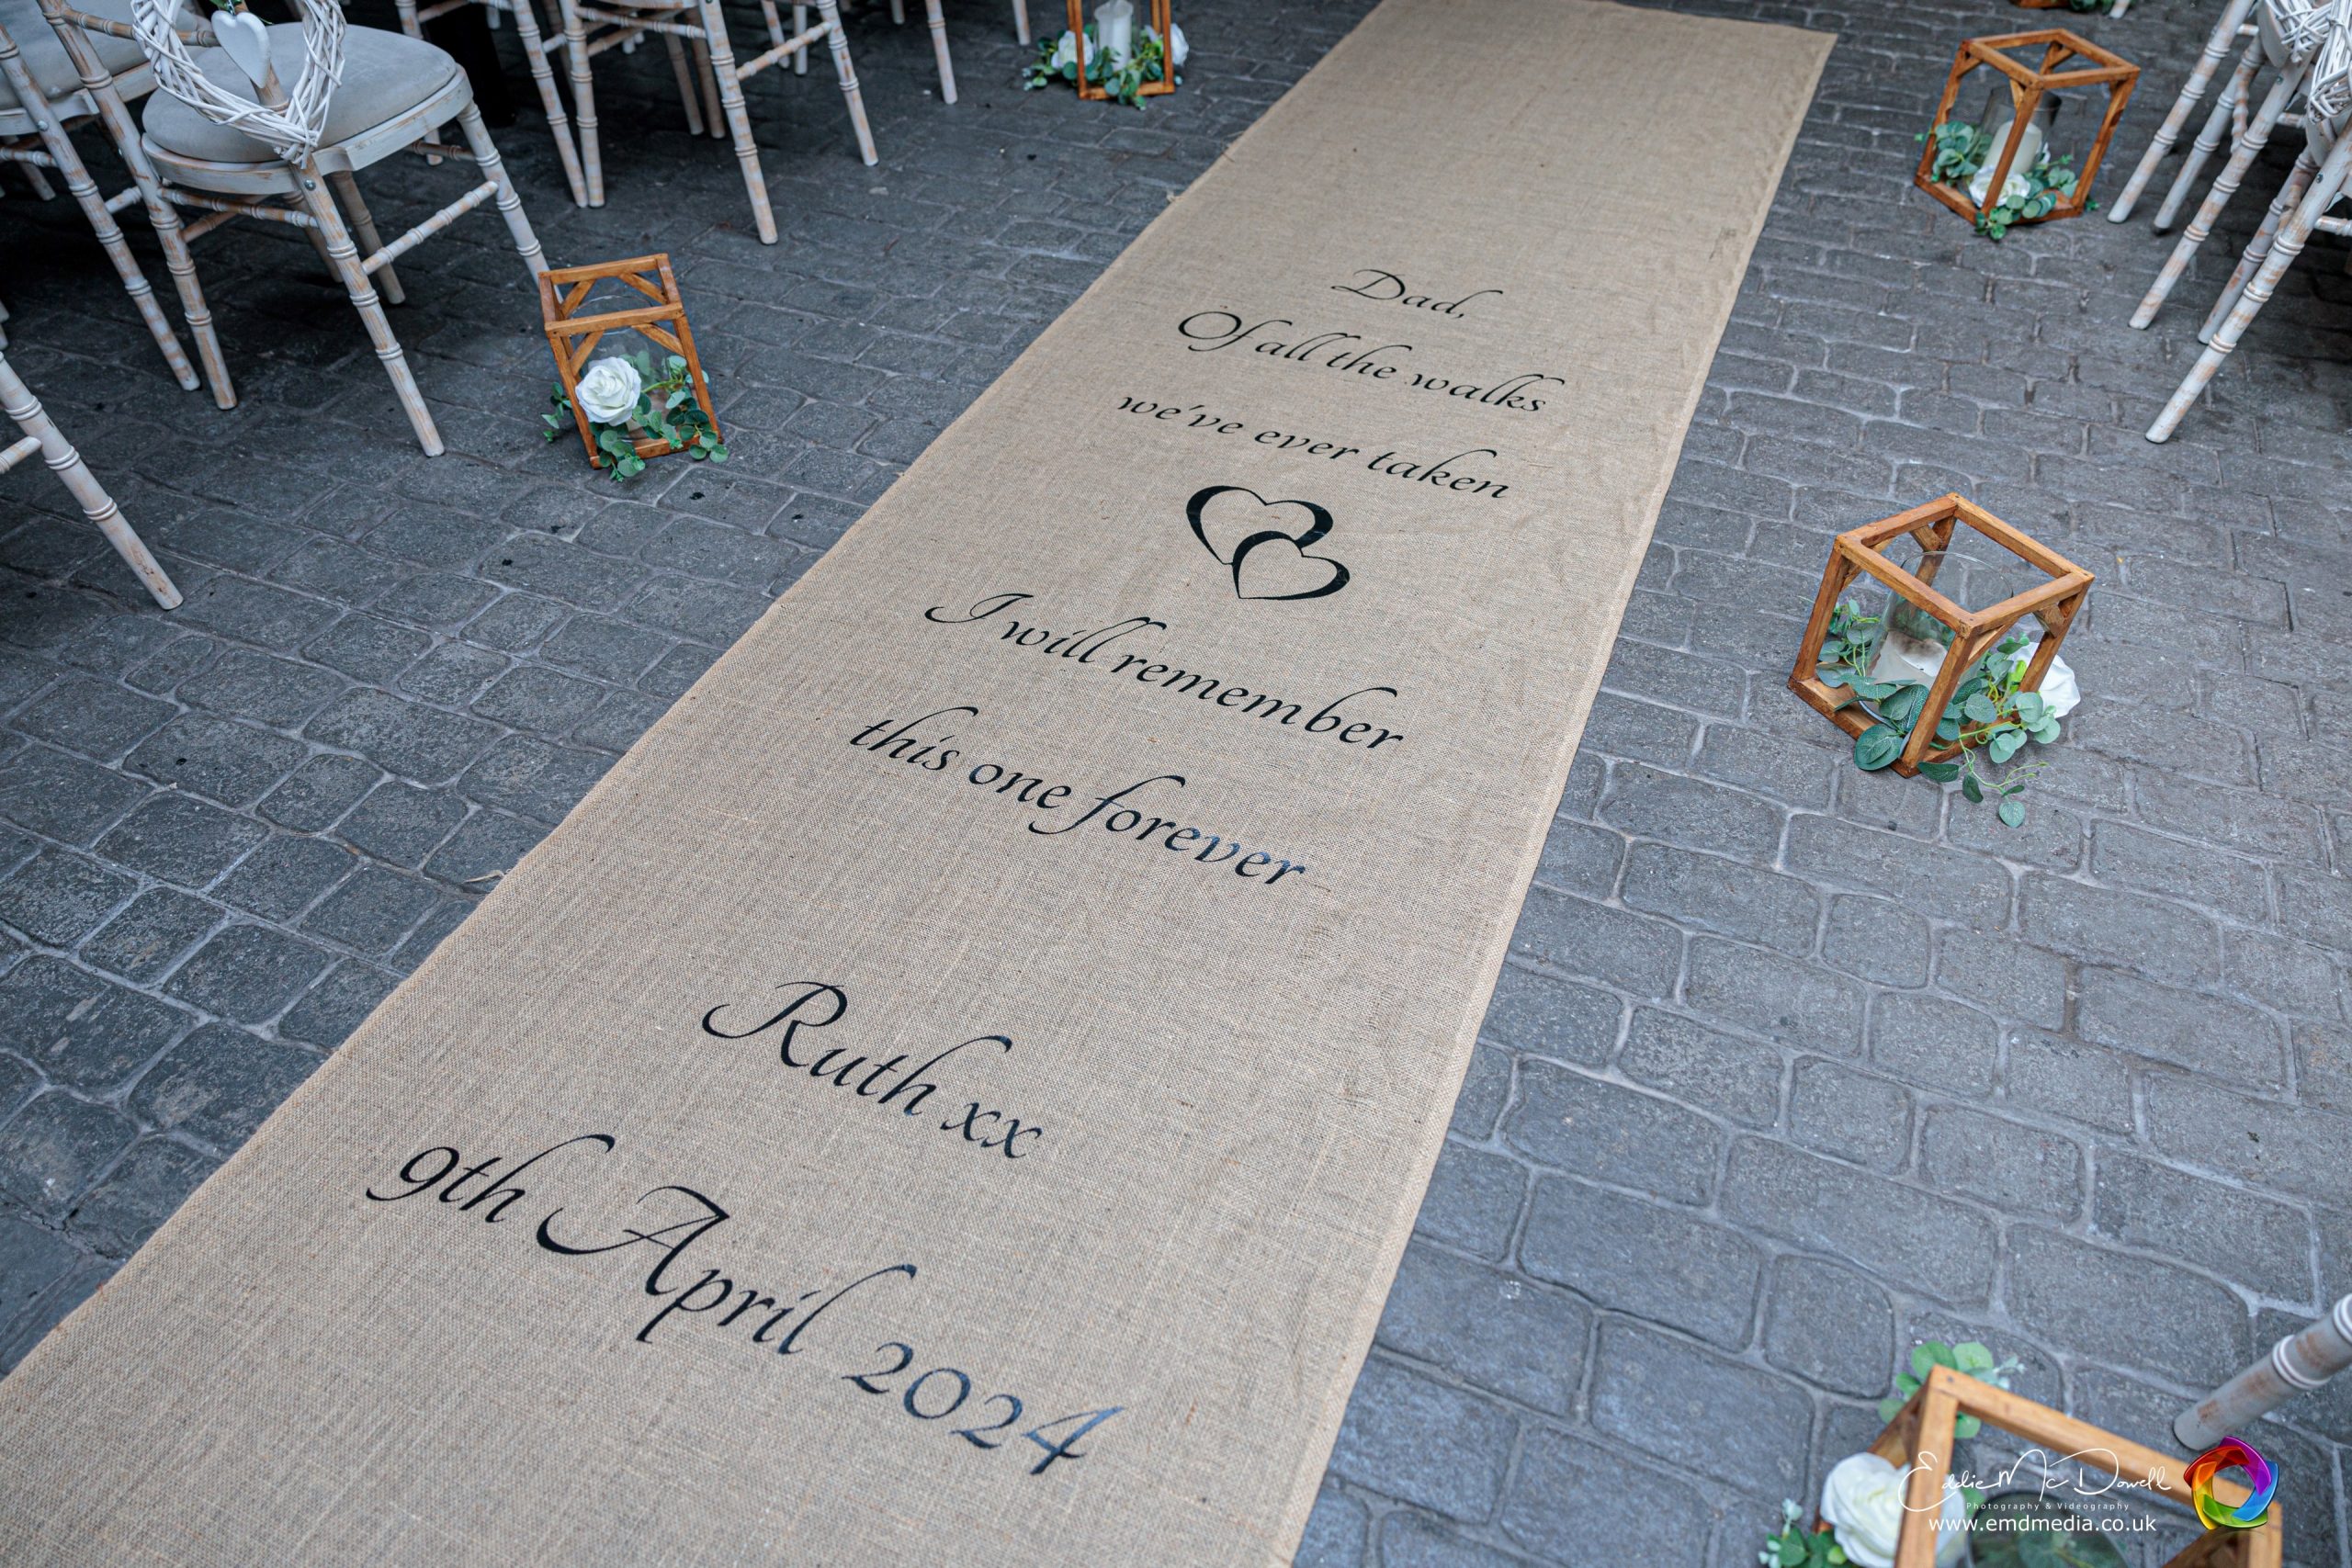 Dad,
Of all the walks
we've ever taken
I will remember
this one forever
Ruth xx
9th April 2024
Eddie McDowell
Photography & Videography
www.emdmedia.co.uk